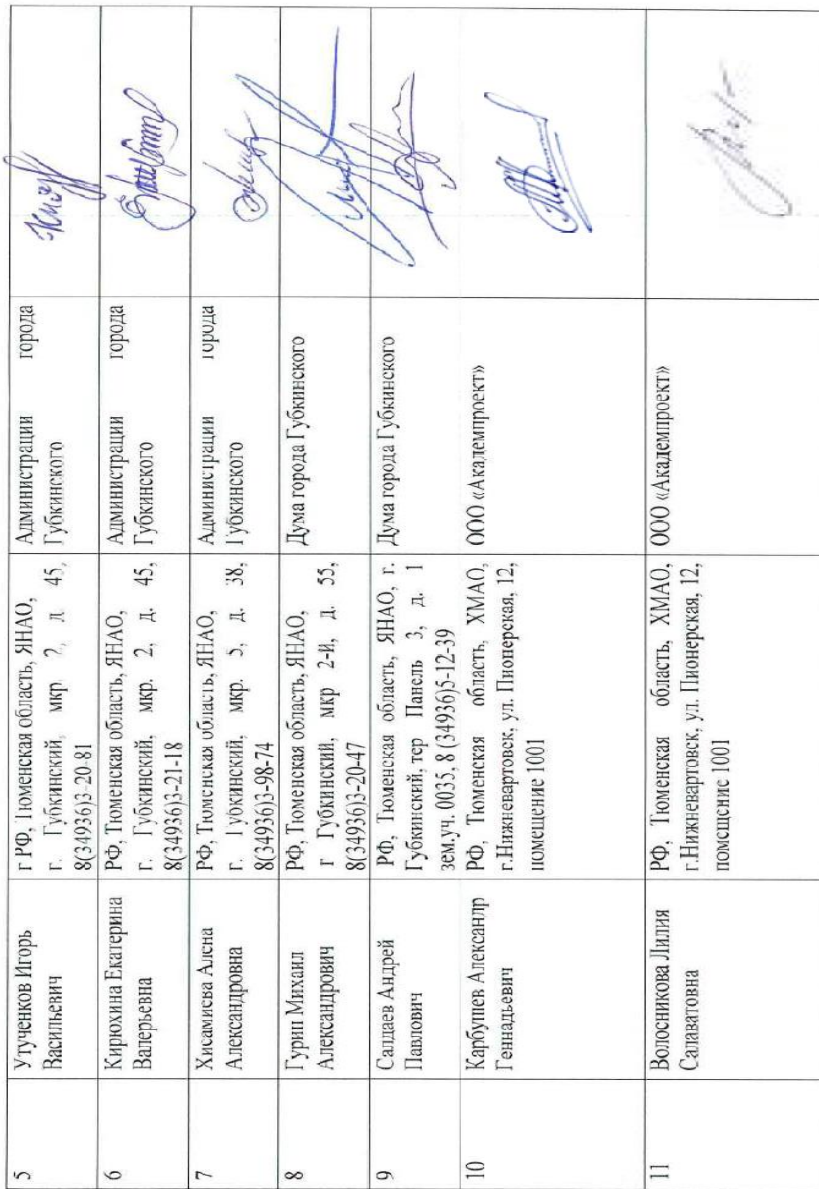 5
Утученков Игорь
Васильевич
г РФ, Тюменская область, ЯНАО,
г. Губкинский, мкр. 2, д 45,
8(34936)3-20-81
Администрации города
Губкинского
6
Кирюхина Екатерина
Валерьевна
РФ, Тюменская область, ЯНАО,
г. Губкинский, мкр. 2, д. 45,
8(34936)3-21-18
Администрации города
Губкинского
7
Хисамиева Алена
Александровна
РФ, Тюменская область, ЯНАО,
г. Губкинский, мкр. 5, д. 38,
8(34936)3-98-74
Администрации города
Губкинского
8
Гурин Михаил
Александрович
РФ, Тюменская область, ЯНАО,
г Губкинский, мкр 2-й, д. 55,
8(34936)3-20-47
Дума города Губкинского
9
Салдаев Андрей
Павлович
РФ, Тюменская область, ЯНАО, г.
Губкинский, тер Панель 3, д. 1
зем.уч. 0035, 8 (34936)5-12-39
Дума города Губкинского
10
Карбушев Александр
Геннадьевич
РФ, Тюменская область, ХМАО,
г.Нижневартовск, ул. Пионерская, 12,
помещение 1001
ООО «Академпроект»
11
Волосникова Лилия
Салаватовна
РФ, Тюменская область, ХМАО,
г.Нижневартовск, ул. Пионерская, 12,
помещение 1001
ООО «Академпроект»